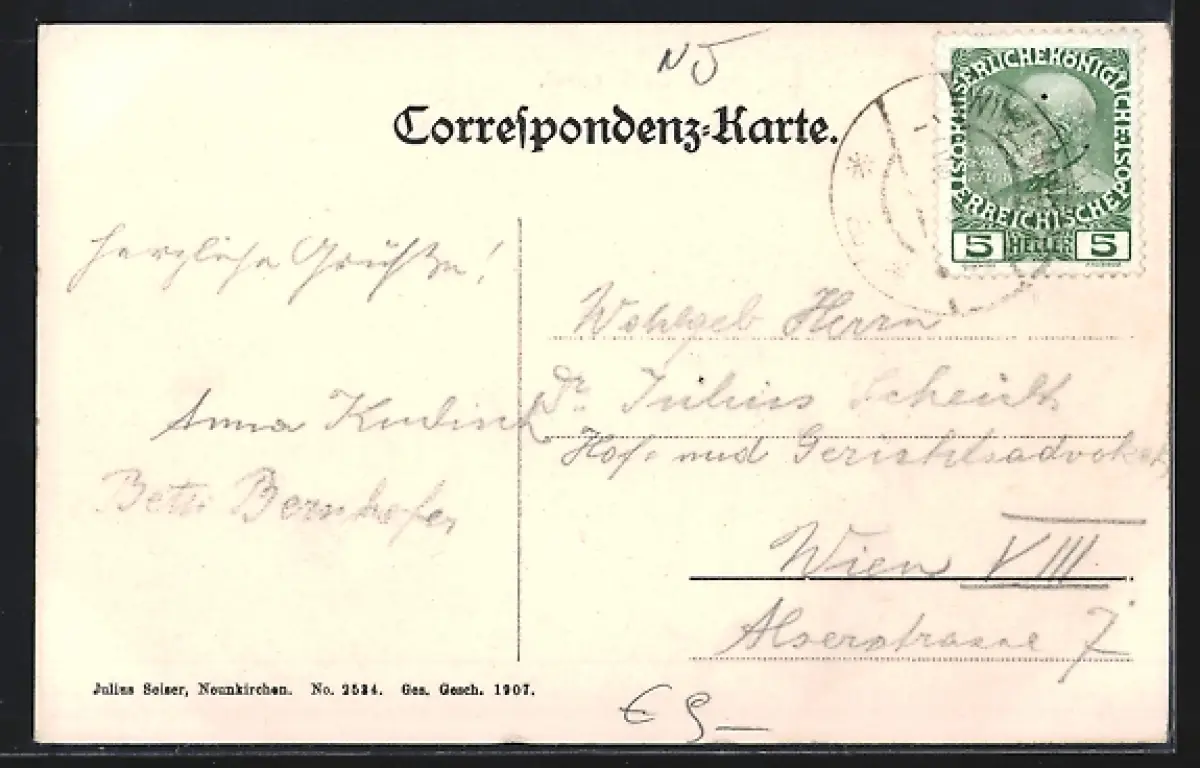 NJ
Correspondenz-Karte.
KAISERLICHE KÖNIGLICHE ÖSTERREICHISCHE POST
5 HELLER 5
Herzliche Grüße!
Anna
Betti Bernhofer
Wohlgeb Herrn
Dr. Julius
Hof- und Gerichtsadvokat
Wien VIII.
Alserstrasse 7
Julius Seiser, Neunkirchen. No. 2534. Ges. Gesch. 1907.
€ 9–